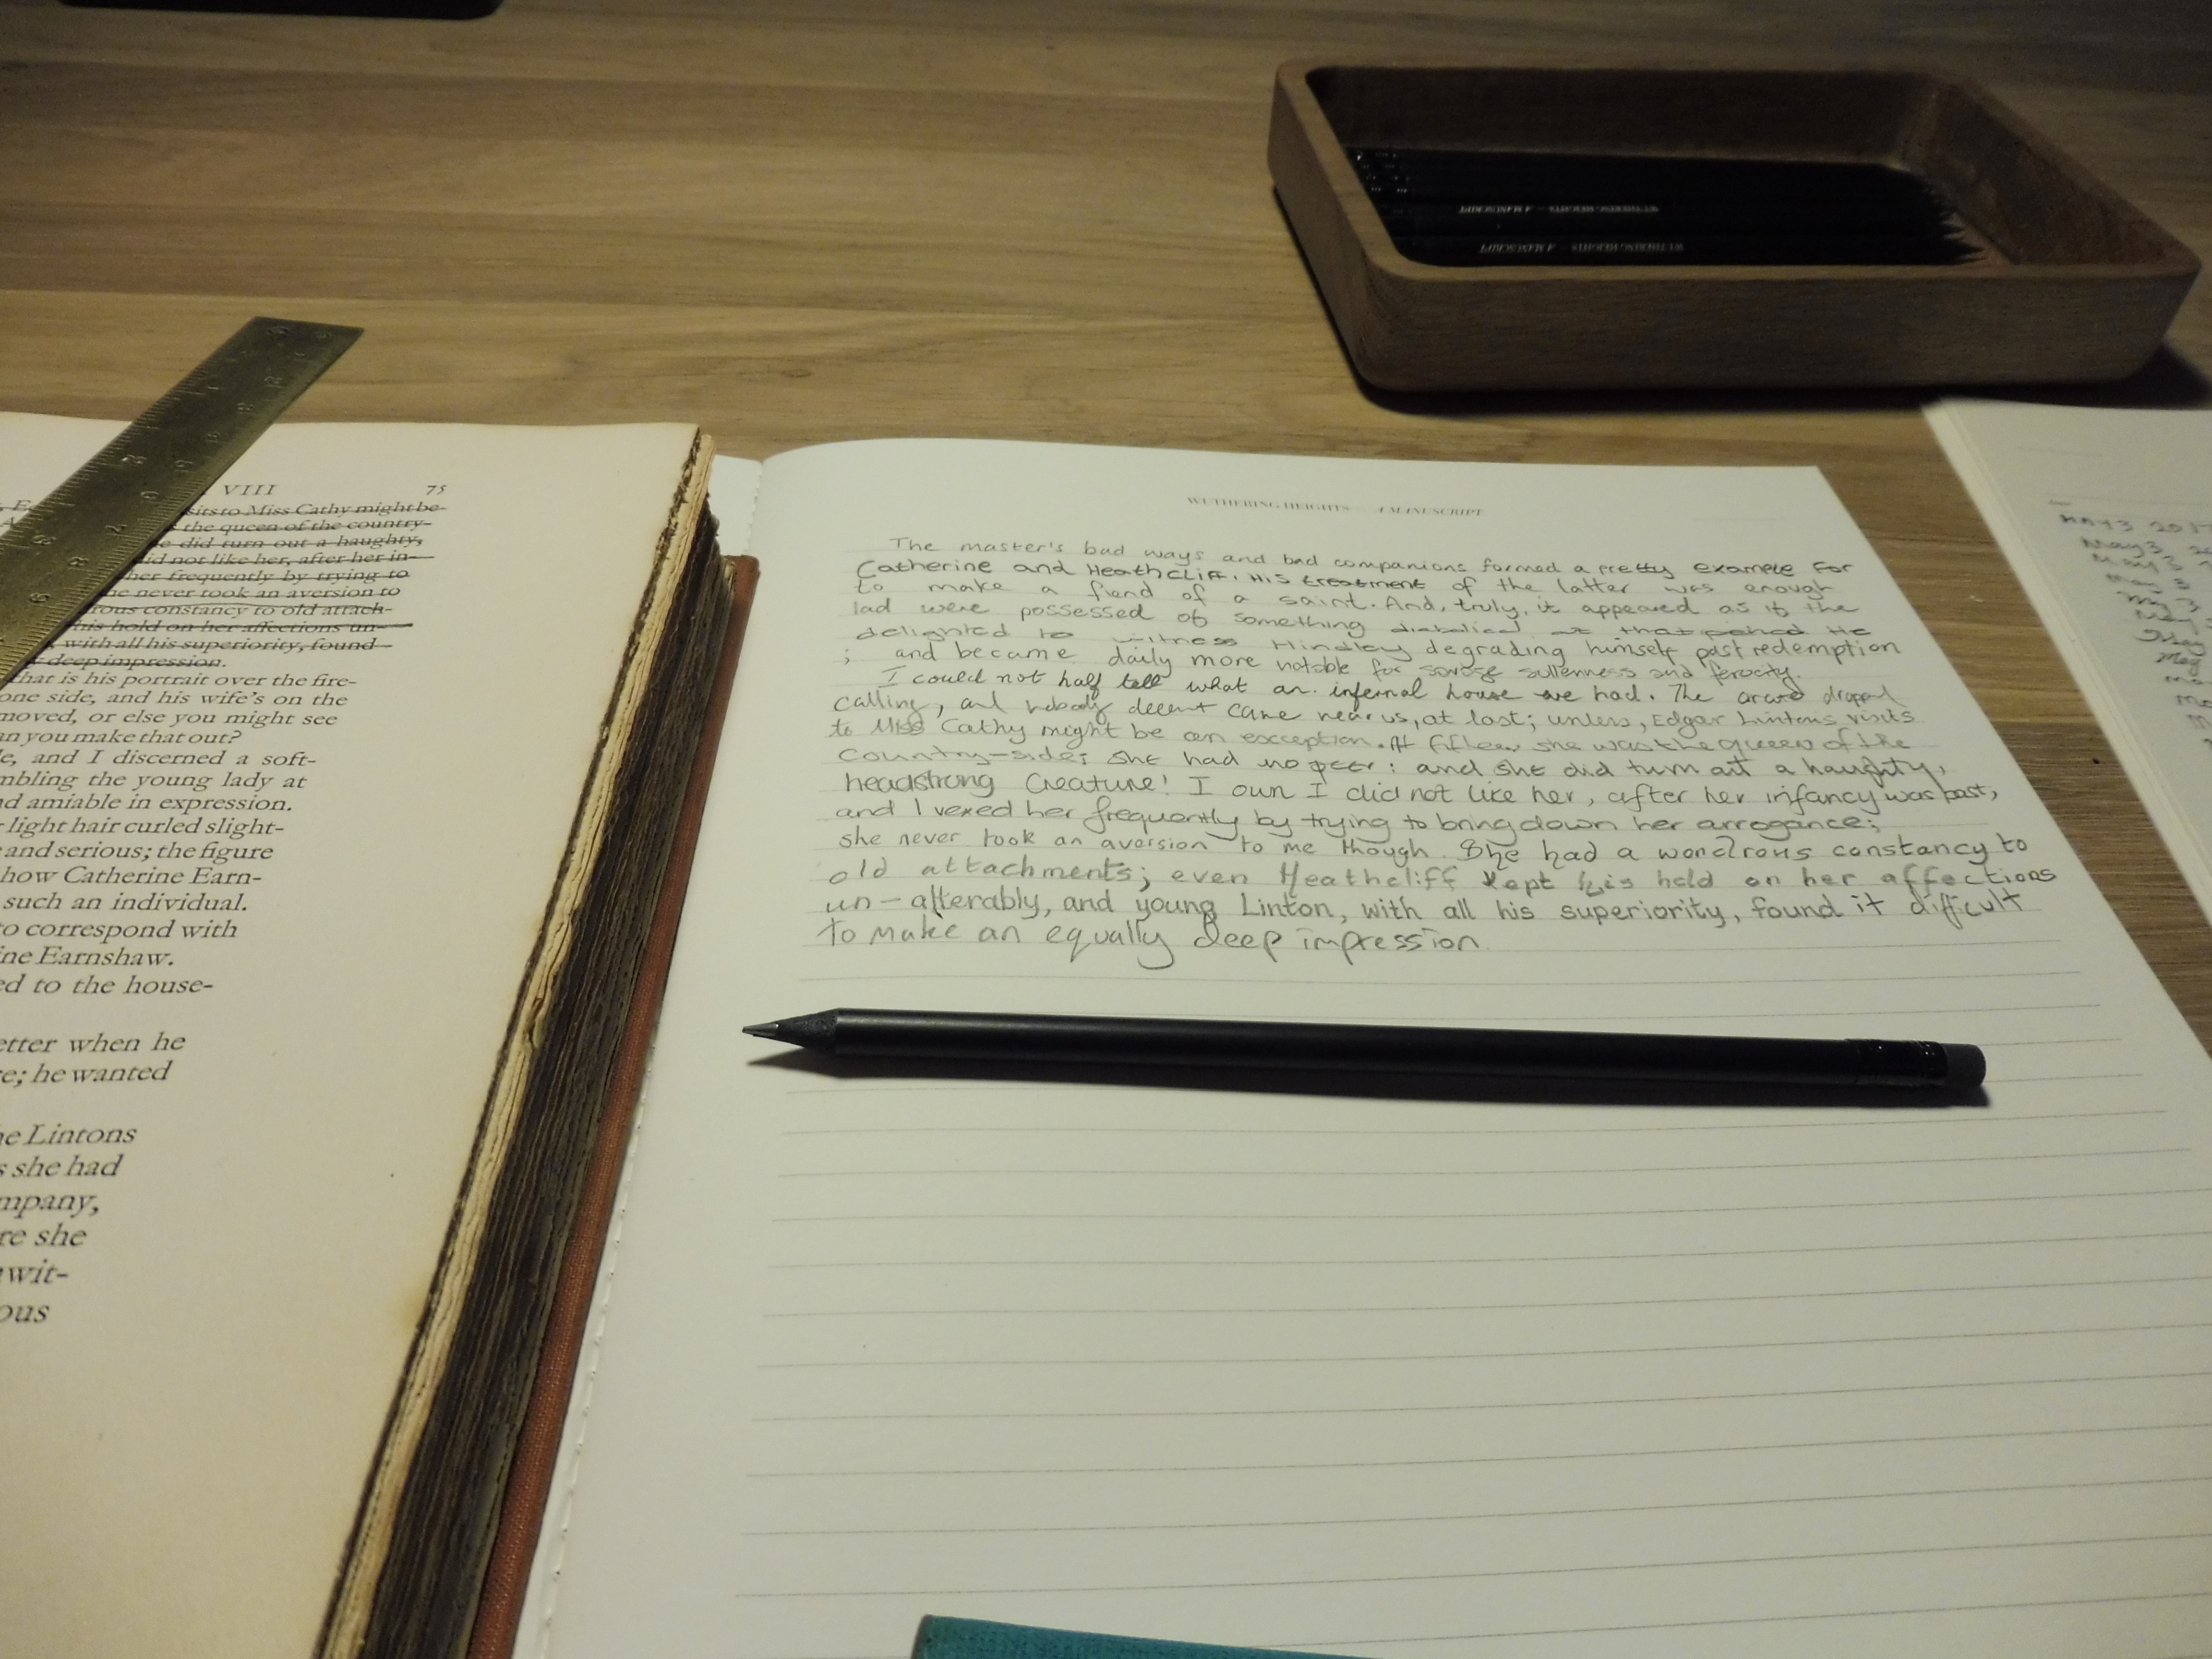 WUTHERING HEIGHTS — A MANUSCRIPT
WUTHERING HEIGHTS — A MANUSCRIPT
VIII 75
sits to Miss Cathy might be-
the queen of the country-
e did turn out a haughty,
id not like her, after her in-
her frequently by trying to
he never took an aversion to
rous constancy to old attach-
his hold on her affections un-
with all his superiority, found
deep impression.
hat is his portrait over the fire-
one side, and his wife's on the
moved, or else you might see
an you make that out?
le, and I discerned a soft-
mbling the young lady at
d amiable in expression.
light hair curled slight-
and serious; the figure
how Catherine Earn-
such an individual.
to correspond with
ine Earnshaw.
ed to the house-
etter when he
e; he wanted
he Lintons
s she had
mpany,
re she
wit-
ous
WUTHERING HEIGHTS — A MANUSCRIPT
The master's bad ways and bad companions formed a pretty example for
Catherine and Heathcliff. His treatment of the latter was enough
to make a fiend of a saint. And, truly, it appeared as if the
lad were possessed of something diabolical at that period. He
delighted to witness Hindley degrading himself past redemption
; and became daily more notable for savage sullenness and ferocity.
I could not half tell what an infernal house we had. The dropped
calling, and nobody decent came near us, at last; unless, Edgar Lintons visits
to Miss Cathy might be an exception. At fifteen she was the queen of the
country-side; she had no peer: and she did turn out a haughty,
headstrong creature! I own I did not like her, after her infancy was past,
and I vexed her frequently by trying to bring down her arrogance;
she never took an aversion to me though. She had a wondrous constancy to
old attachments; even Heathcliff kept his hold on her affections
un-alterably, and young Linton, with all his superiority, found it difficult
to make an equally deep impression.
MAY 3 2017
May 3
May 3
May 3
My 3
May
May